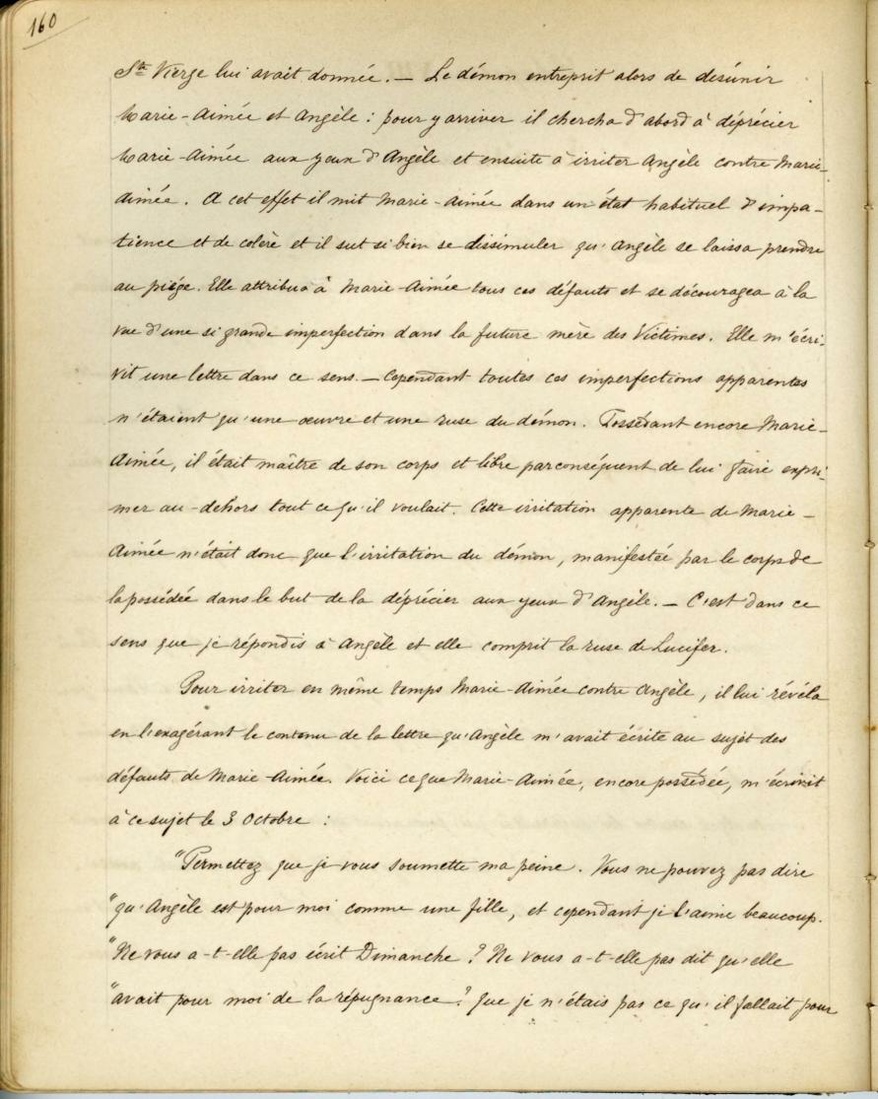 160
Ste Vierge lui avait donnée. — Le démon entreprit alors de désunir
Marie-Aimée et Angèle : pour y arriver il chercha d'abord à déprécier
Marie-Aimée aux yeux d'Angèle et ensuite à irriter Angèle contre Marie-
Aimée. A cet effet il mit Marie-Aimée dans un état habituel d'impa-
tience et de colère et il sut si bien se dissimuler qu'Angèle se laissa prendre
au piège. Elle attribua à Marie-Aimée tous ces défauts et se découragea à la
vue d'une si grande imperfection dans la future mère des Victimes. Elle m'écri-
vit une lettre dans ce sens. — Cependant toutes ces imperfections apparentes
n'étaient qu'une œuvre et une ruse du démon. Possédant encore Marie-
Aimée, il était maître de son corps et libre parconséquent de lui faire expri-
mer au-dehors tout ce qu'il voulait. Cette irritation apparente de Marie-
Aimée n'était donc que l'irritation du démon, manifestée par le corps de
la possédée dans le but de la déprécier aux yeux d'Angèle. — C'est dans ce
sens que je répondis à Angèle et elle comprit la ruse de Lucifer.
Pour irriter en même temps Marie-Aimée contre Angèle, il lui révéla
en l'exagérant le contenu de la lettre qu'Angèle m'avait écrite au sujet des
défauts de Marie-Aimée. Voici ce que Marie-Aimée, encore possédée, m'écrivit
à ce sujet le 3 Octobre :
"Permettez que je vous soumette ma peine. Vous ne pouvez pas dire
"qu'Angèle est pour moi comme une fille, et cependant je l'aime beaucoup.
"Ne vous a-t-elle pas écrit Dimanche ? Ne vous a-t-elle pas dit qu'elle
"avait pour moi de la répugnance ? que je n'étais pas ce qu'il fallait pour